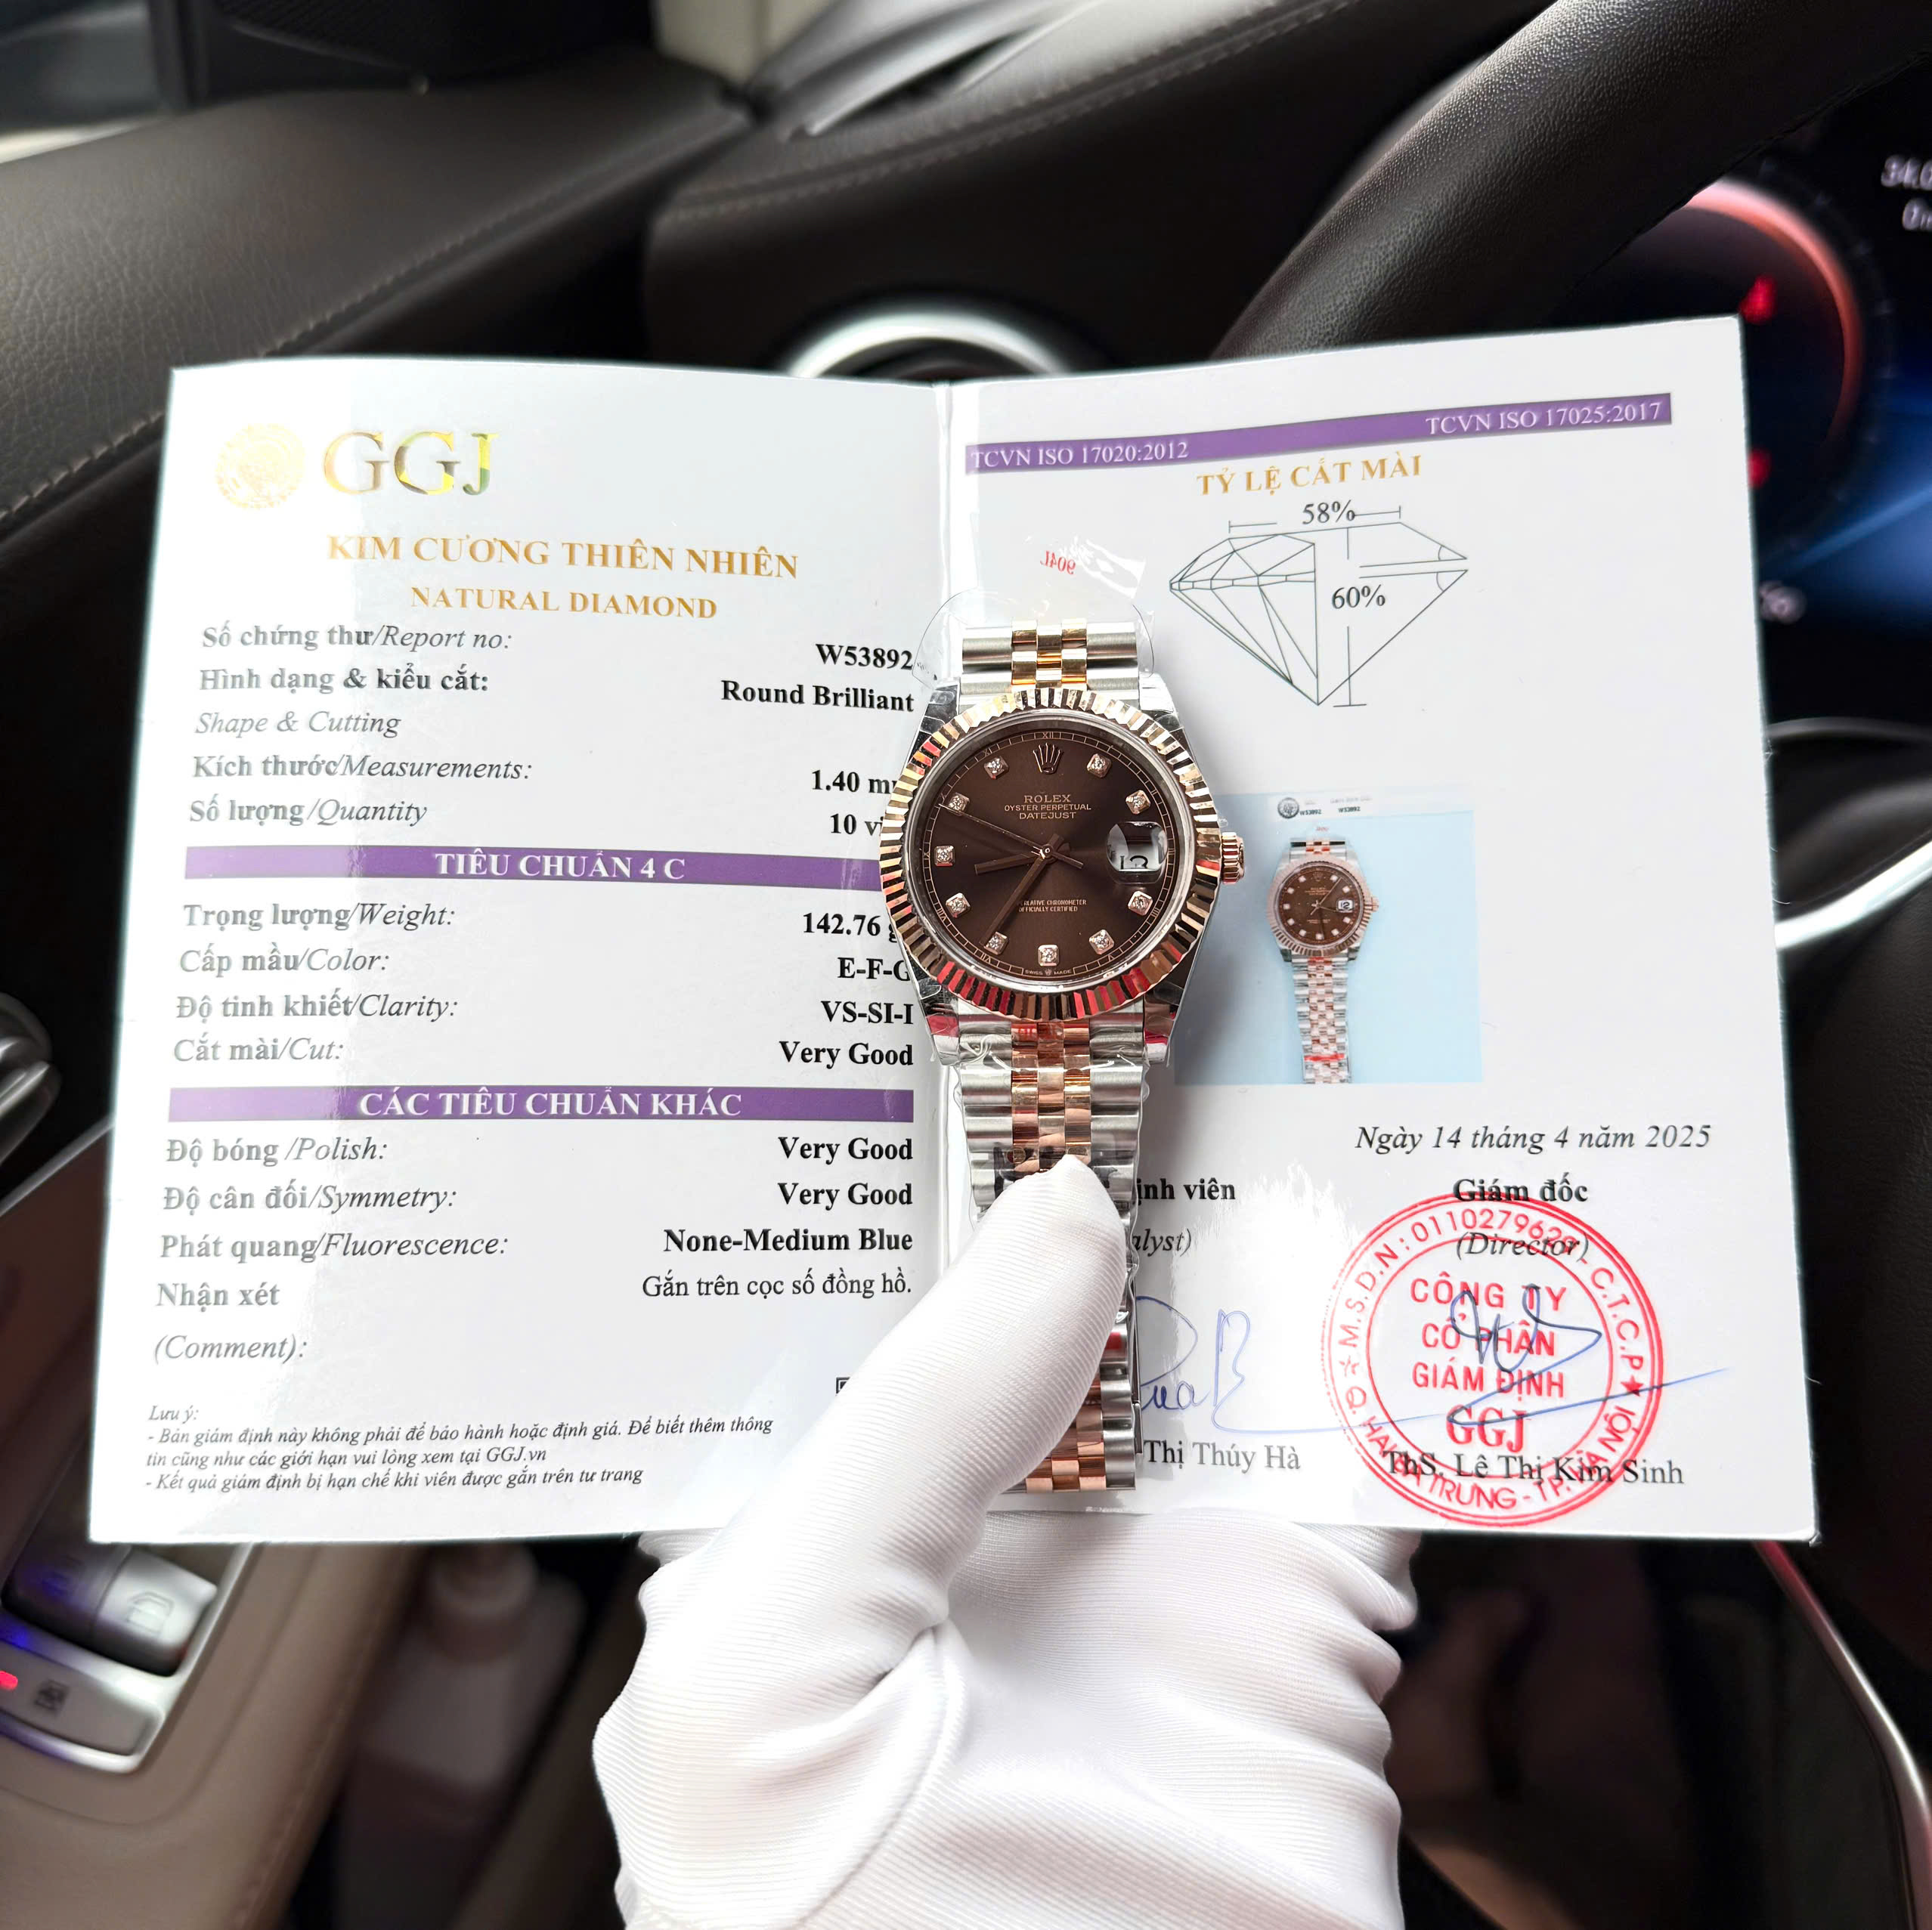 GGJ
KIM CƯƠNG THIÊN NHIÊN
NATURAL DIAMOND
Số chứng thư/Report no: W53892
Hình dạng & kiểu cắt: Round Brilliant
Shape & Cutting
Kích thước/Measurements: 1.40
Số lượng/Quantity 10
TIÊU CHUẨN 4 C
Trọng lượng/Weight: 142.76
Cấp mầu/Color: E-F-G
Độ tinh khiết/Clarity: VS-SI-I
Cắt mài/Cut: Very Good
CÁC TIÊU CHUẨN KHÁC
Độ bóng /Polish: Very Good
Độ cân đối/Symmetry: Very Good
Phát quang/Fluorescence: None-Medium Blue
Nhận xét Gắn trên cọc số đồng hồ.
(Comment):
Lưu ý:
- Bản giám định này không phải để bảo hành hoặc định giá. Để biết thêm thông
tin cũng như các giới hạn vui lòng xem tại GGJ.vn
- Kết quả giám định bị hạn chế khi viên được gắn trên tư trang
TCVN ISO 17020:2012 TCVN ISO 17025:2017
TỶ LỆ CẮT MÀI
58%
60%
904L
ROLEX
OYSTER PERPETUAL
DATEJUST
OFFICIALLY CERTIFIED
SWISS MADE
W53892 W53892
Ngày 14 tháng 4 năm 2025
viên Giám đốc
(Director)
CÔNG TY
CỔ PHẦN
GIÁM ĐỊNH
GGJ
Thị Thúy Hà ThS. Lê Thị Kim Sinh